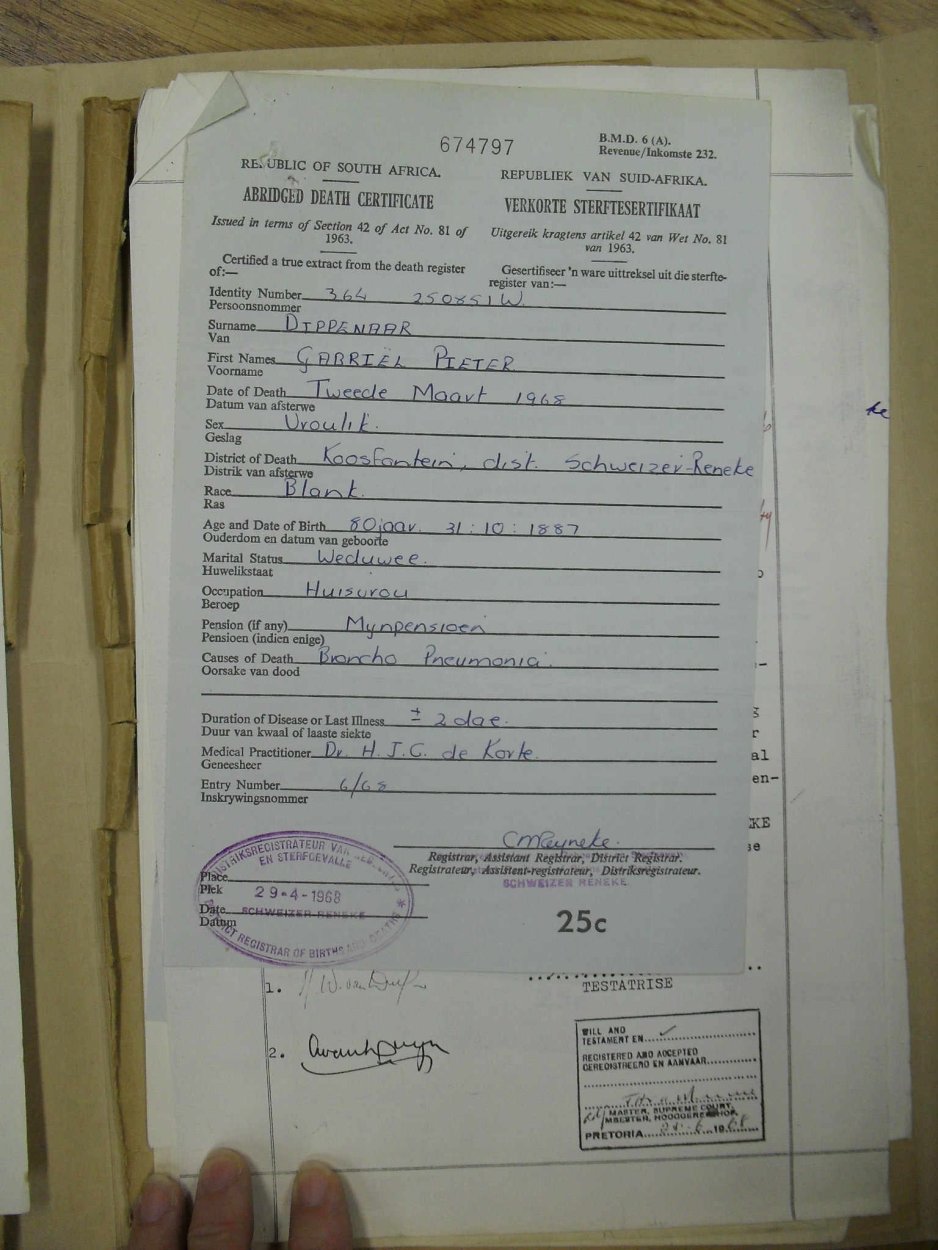 674797
B.M.D. 6 (A).
Revenue/Inkomste 232.
REPUBLIC OF SOUTH AFRICA.
ABRIDGED DEATH CERTIFICATE
Issued in terms of Section 42 of Act No. 81 of
1963.
Certified a true extract from the death register
of:—
REPUBLIEK VAN SUID-AFRIKA.
VERKORTE STERFTESERTIFIKAAT
Uitgereik kragtens artikel 42 van Wet No. 81
van 1963.
Gesertifiseer 'n ware uittreksel uit die sterfte-
register van:—
Identity Number 364 250851W
Persoonsnommer
Surname DIPPENAAR
Van
First Names GABRIËL PIETER
Voorname
Date of Death Tweede Maart 1968
Datum van afsterwe
Sex Vroulik.
Geslag
District of Death Koosfontein, dist. Schweizer-Reneke
Distrik van afsterwe
Race Blank.
Ras
Age and Date of Birth 80 jaar. 31:10:1887
Ouderdom en datum van geboorte
Marital Status Weduwee.
Huwelikstaat
Occupation Huisvrou
Beroep
Pension (if any) Mynpensioen
Pensioen (indien enige)
Causes of Death Broncho Pneumonia.
Oorsake van dood
Duration of Disease or Last Illness ± 2 dae.
Duur van kwaal of laaste siekte
Medical Practitioner Dr. H.J.C. de Korte.
Geneesheer
Entry Number 6/68
Inskrywingsnommer
CMReyneke.
Registrar, Assistant Registrar, District Registrar.
Registrateur, Assistent-registrateur, Distriksregistrateur.
SCHWEIZER RENEKE
DISTRIKSREGISTRATEUR VAN
EN STERFGEVALLE
Place
Plek
29-4-1968
Date SCHWEIZER-RENEKE
Datum
DISTRICT REGISTRAR OF BIRTHS AND DEATHS
25c
al
en-
KE
1.
TESTATRISE
2.
WILL AND
TESTAMENT EN
REGISTERED AND ACCEPTED
GEREGISTREERD EN AANVAAR
MASTER, SUPREME COURT,
MEESTER, HOOGGEREGSHOF,
PRETORIA